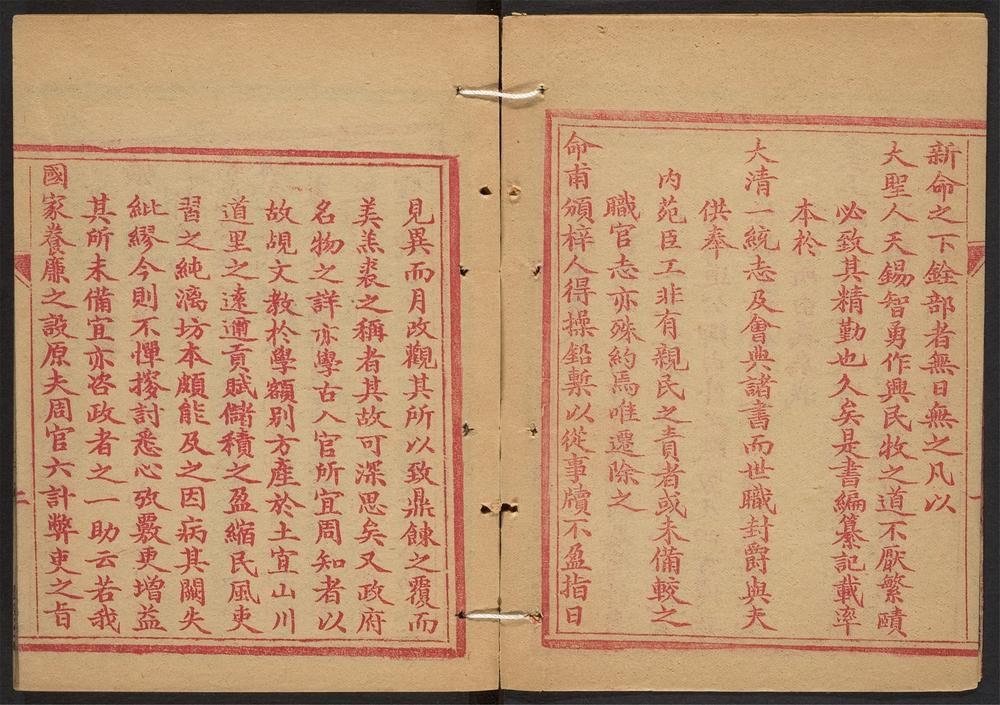 新命之下銓部者無日無之凡以
大聖人天錫智勇作興民牧之道不厭繁賾
必致其精勤也久矣是書編纂記載率
本於
大清一統志及會典諸書而世職封爵與夫
供奉
內苑臣工非有親民之責者或未備較之
職官志亦殊約焉唯遷除之
命甫頒梓人得操鉛槧以從事牘不盈指日
見異而月改觀其所以致鼎餗之覆而
美羔裘之稱者其故可深思矣又政府
名物之詳亦學古入官所宜周知者以
故覘文教於學額別方產於土宜山川
道里之遠邇貢賦儲積之盈縮民風吏
習之純漓坊本頗能及之因病其闕失
紕繆今則不憚搜討悉心攷覈更增益
其所未備宜亦咨政者之一助云若我
國家養廉之設原夫周官六計弊吏之旨
二